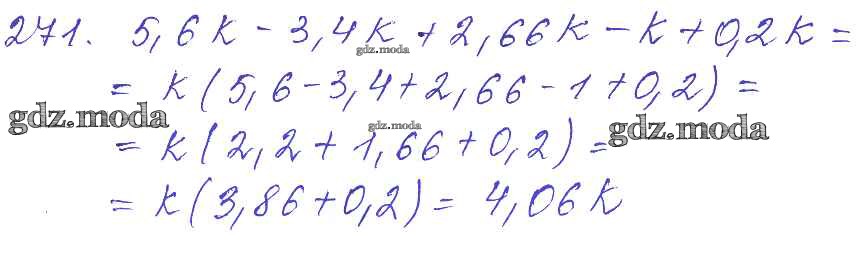 271. 5,6k - 3,4k + 2,66k - k + 0,2k =
gdz.moda
= k(5,6-3,4+2,66-1+0,2) =
gdz.moda
gdz.moda
gdz.moda
= k(2,2+1,66+0,2) =
= k(3,86+0,2) = 4,06k